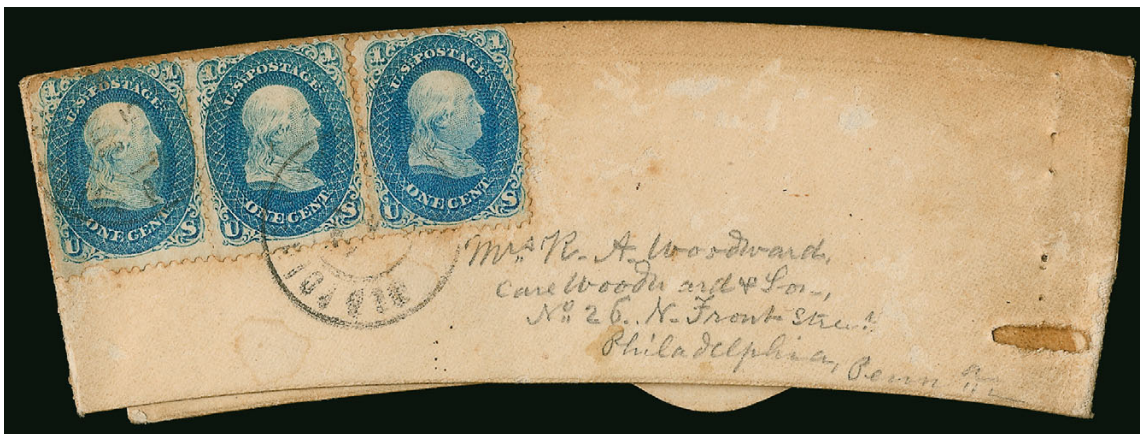 1 1
U.S. POSTAGE.
ONE CENT.
U S
1 1
U.S. POSTAGE.
ONE CENT.
U S
1 1
U.S. POSTAGE.
ONE CENT.
U S
Mrs. R. A. Woodward,
Care Woodward &
No. 26. N. Front Street
Philadelphia,
Penn